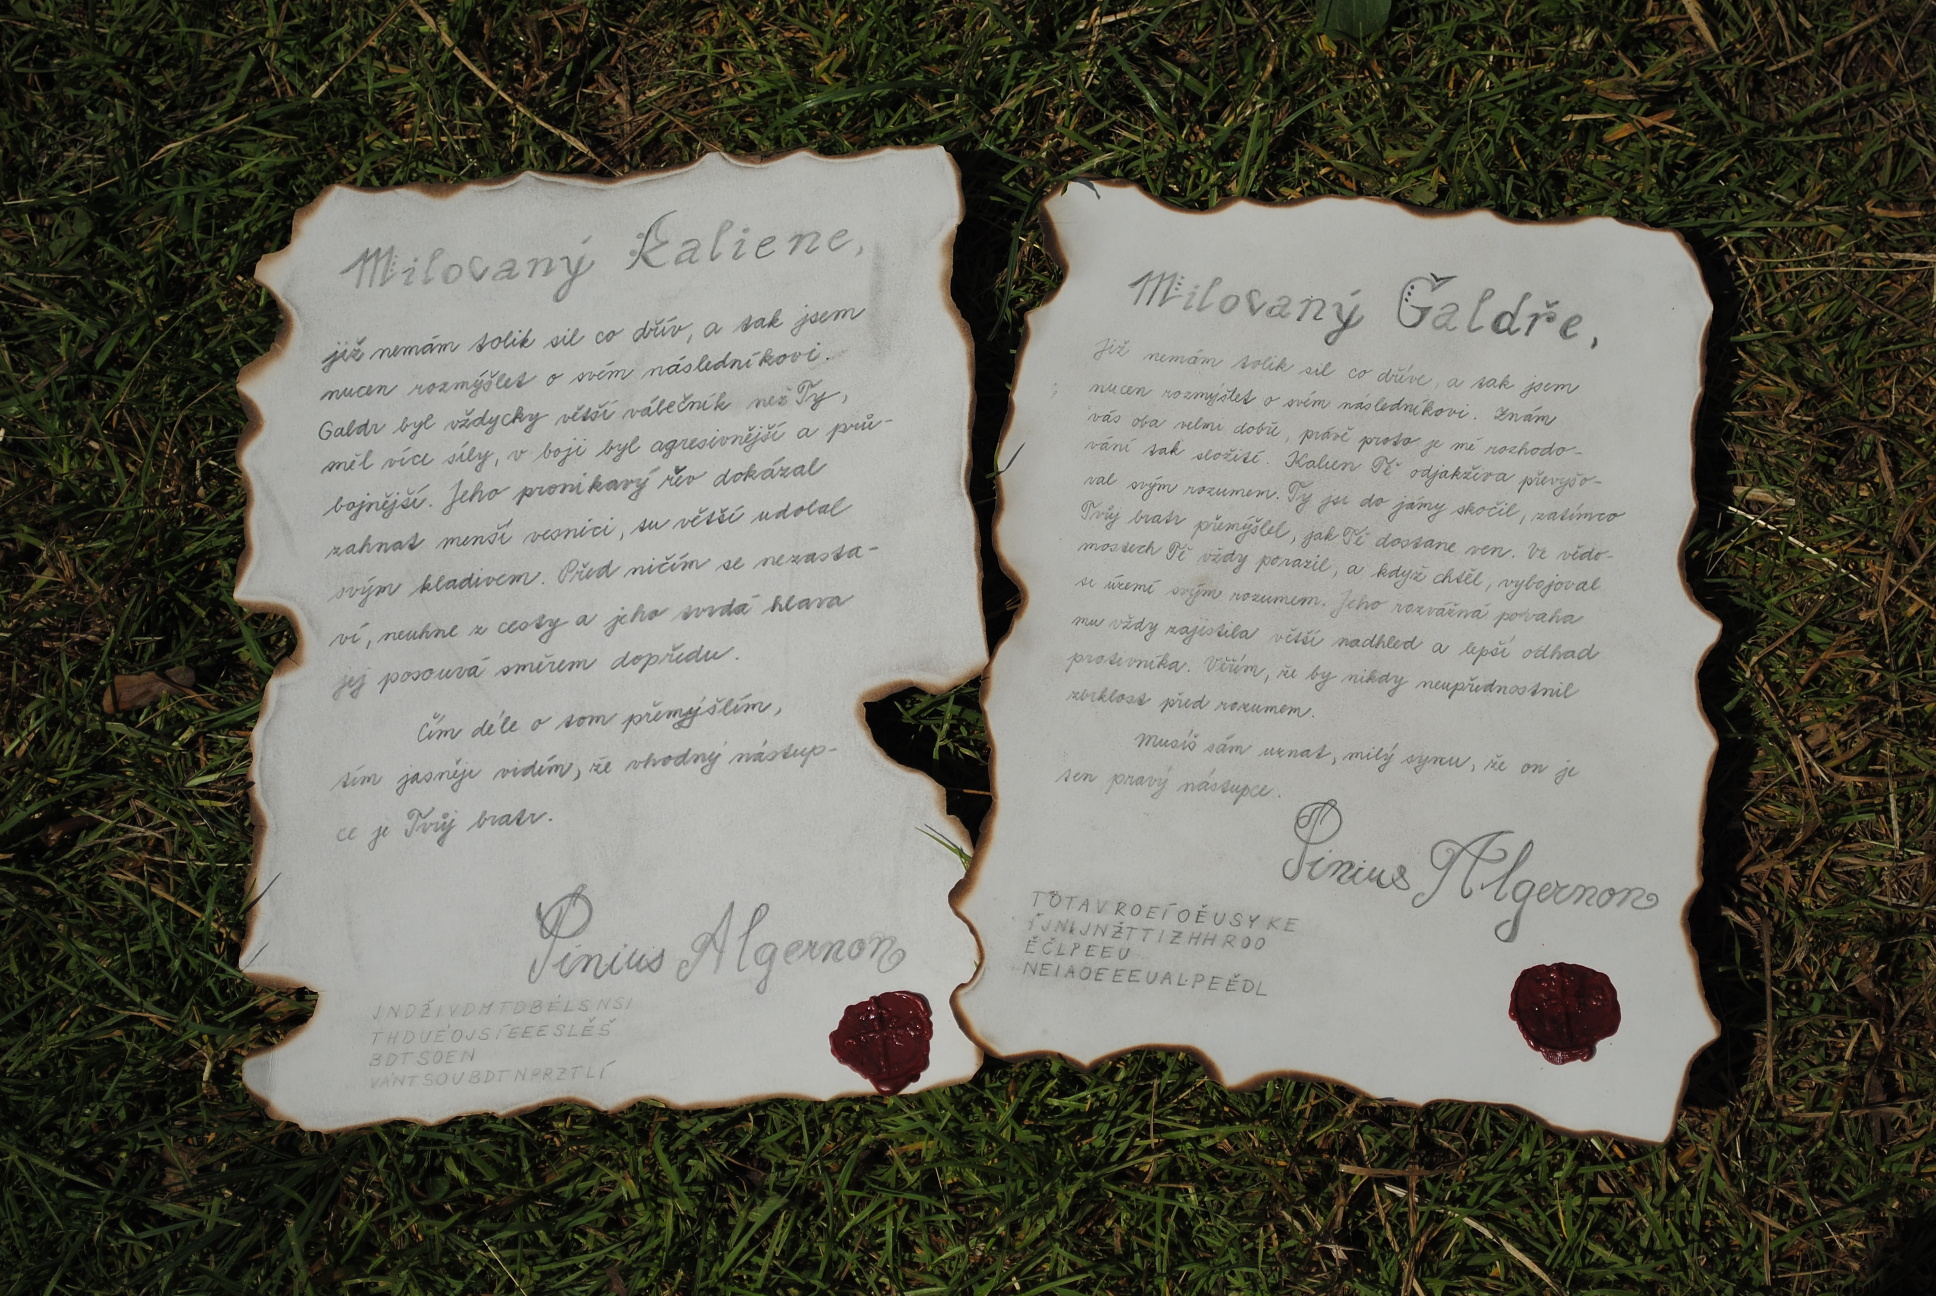 Milovaný Kaliene,
již nemám tolik sil co dřív, a tak jsem
nucen rozmýšlet o svém následníkovi.
Galdr byl vždycky větší válečník než Ty,
měl více síly, v boji byl agresivnější a prů-
bojnější. Jeho pronikavý řev dokázal
zahnat menší vesnici, tu větší udolal
svým kladivem. Před ničím se nezasta-
ví, neuhne z cesty a jeho tvrdá hlava
jej posouvá směrem dopředu.
Čím déle o tom přemýšlím,
tím jasněji vidím, že vhodný nástup-
ce je Tvůj bratr.
Pinius Algernon
JNDŽIVDMTDBÉLSNSI
THDUEOJSÍEEESLĚŠ
BDTSOEN
VANTSOUBDTNPRZTLÍ
Milovaný Galdře,
Již nemám tolik sil co dříve, a tak jsem
nucen rozmýšlet o svém následníkovi. Znám
vás oba velmi dobře, právě proto je mé rozhodo-
vání tak složité. Kalien Tě odjakživa převyšo-
val svým rozumem. Ty jsi do jámy skočil, zatímco
Tvůj bratr přemýšlel, jak Tě dostane ven. Ve vědo-
mostech Tě vždy porazil, a když chtěl, vybojoval
si území svým rozumem. Jeho rozvážná povaha
mu vždy zajistila větší nadhled a lepší odhad
protivníka. Věřím, že by nikdy neupřednostnil
zbrklost před rozumem.
Musíš sám uznat, milý synu, že on je
ten pravý nástupce.
Pinius Algernon
TOTAVROEÍOĚUSYKE
ÍJNIJNŽTTIZHHROO
ĚČLPEEU
NEIAOEEEUALPEĚDL